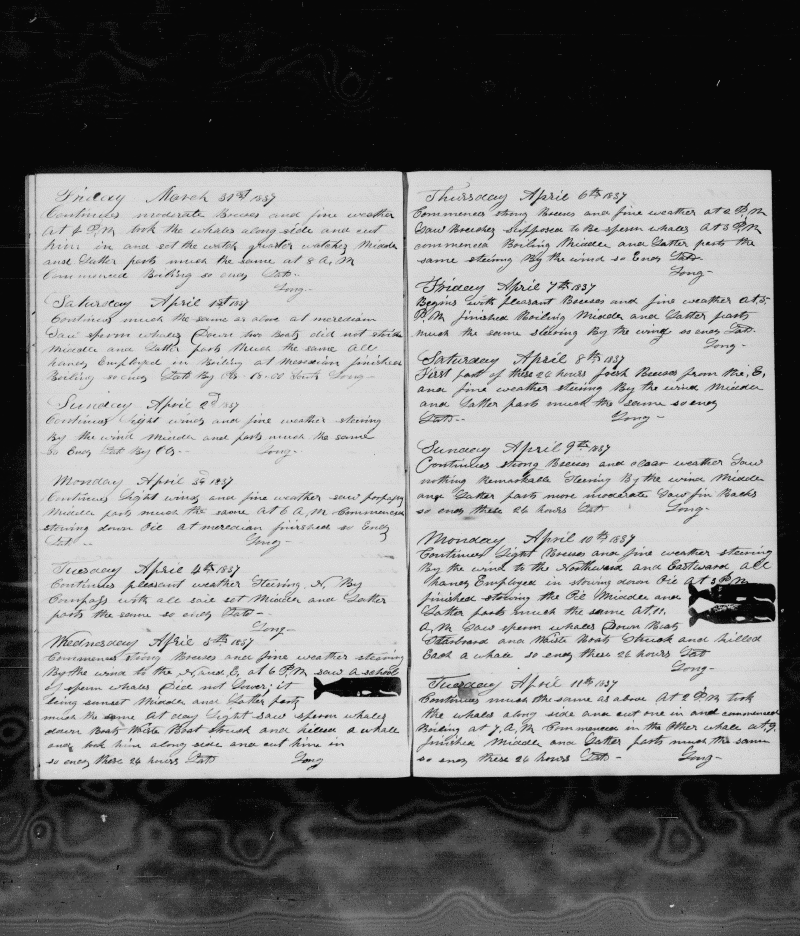 Friday March 31st 1837
Continues moderate Breeses and fine weather
At 4 P,M took the whales along side and cut
him in and set the watch quarter watches Midder
and Latter parts much the same at 8 A,M
Commenced Boiling so ends Lat-
Long-
Saturday April 1st 1837
Continues much the same as above at meredian
Saw sperm whales Down two Boats did not strike
Midder and Latter parts Much the same All
hands Employed in Boiling at Meredian finished
Boiling so ends Latt By Obs South Long-
Sunday April 2d 1837
Continues Light winds and fine weather steering
By the wind Midder and parts much the same
So Ends Lat By Obs- Long-
Monday April 3d 1837
Continues Light winds and fine weather saw
Midder parts much the same At 6 A,M Commenced
stowing down Oil at meredian finished so Ends
Lat - Long-
Tuesday April 4th 1837
Continues pleasant weather Steering N By
Compass with all sail set Midder and Latter
parts the same so ends Lat-
Long-
Wednesday April 5th 1837
Commences strong Breeses and fine weather steering
By the wind to the N,and E, at 6 P,M saw a school
of sperm whales Did not Lower, it
being sunset Midder and Latter parts
much the same At day Light saw sperm whales
down Boats Waste Boat Struck and killed a whale
and took him along side and cut him in
so ends these 24 hours Latt Long
Thursday April 6th 1837
Commences strong Breeses and fine weather at 2 P,M
Saw Breeches supposed to Be sperm whales At 3 P,M
commenced Boiling Midder and Latter parts the
same steering By the wind so Ends Lat-
Long-
Friday April 7th 1837
Begins with pleasant Breeses and fine weather At 5
P,M finished Boiling Midder and Latter parts
much the same steering By the wind so ends Lat-
Long-
Saturday April 8th 1837
First part of these 24 hours fresh Breeses from the, E,
and fine weather steering By the wind Midder
and Latter parts much the same so ends
Latt- Long-
Sunday April 9th 1837
Continues strong Breeses and clear weather Saw
nothing Remarkable Steering By the wind Midder
and Latter parts more moderate Saw fin Backs
so ends these 24 hours Latt Long-
Monday April 10th 1837
Continues Light Breeses and fine weather steering
By the wind to the Northward and Eastward All
hands Employed in stowing down Oil At 3 P,M
finished stowing the Oil Midder and
Latter parts much the same At 11.
A,M Saw sperm whales Down Boats
Starboard and Waste Boats Struck and killed
Each a whale so ends these 24 hours Latt
Long-
Tuesday April 11th 1837
Continues much the same as above At 2 P,M took
the whales along side and cut one in and commenced
Boiling at 7, A,M Commenced in the Other whale at 9,
finished Midder and Latter parts much the same
so ends these 24 hours Latt- Long-